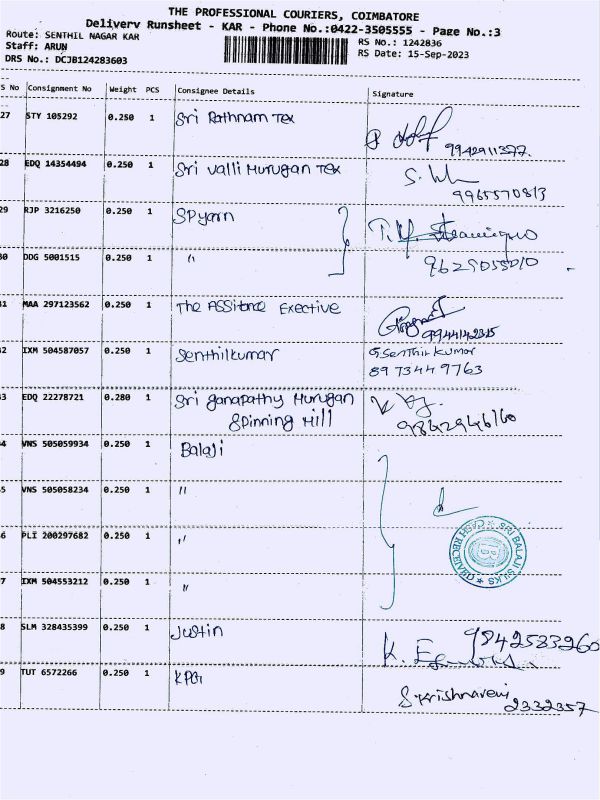 THE PROFESSIONAL COURIERS, COIMBATORE
Delivery Runsheet - KAR - Phone No.:0422-3505555 - Page No.:3
Route: SENTHIL NAGAR KAR
Staff: ARUN
DRS No.: DCJB124283603
RS No.: 1242836
RS Date: 15-Sep-2023
S No Consignment No Weight PCS Consignee Details Signature
27 STY 105292 0.250 1 Sri Rathnam Tex
9942911377
28 EDQ 14354494 0.250 1 Sri Valli Murugan Tex
9965570813
29 RJP 3216250 0.250 1 SPyarn
30 DDG 5001515 0.250 1 "
9629055010
31 MAA 297123562 0.250 1 The ASSitance Exective
9944142315
2 IXM 504587057 0.250 1 Senthilkumar G Senthil Kumar
89 7344 9763
3 EDQ 22278721 0.280 1 Sri Ganapathy Murugan
Spinning Mill
9842946160
4 VNS 505059934 0.250 1 Balaji
5 VNS 505058234 0.250 1 "
6 PLI 200297682 0.250 1 "
SRI BALAJI SILKS * CASH RECEIVED *
B
7 IXM 504553212 0.250 1 "
8 SLM 328435399 0.250 1 Justin
9842583260
K.
9 TUT 6572266 0.250 1 KPG
2332357